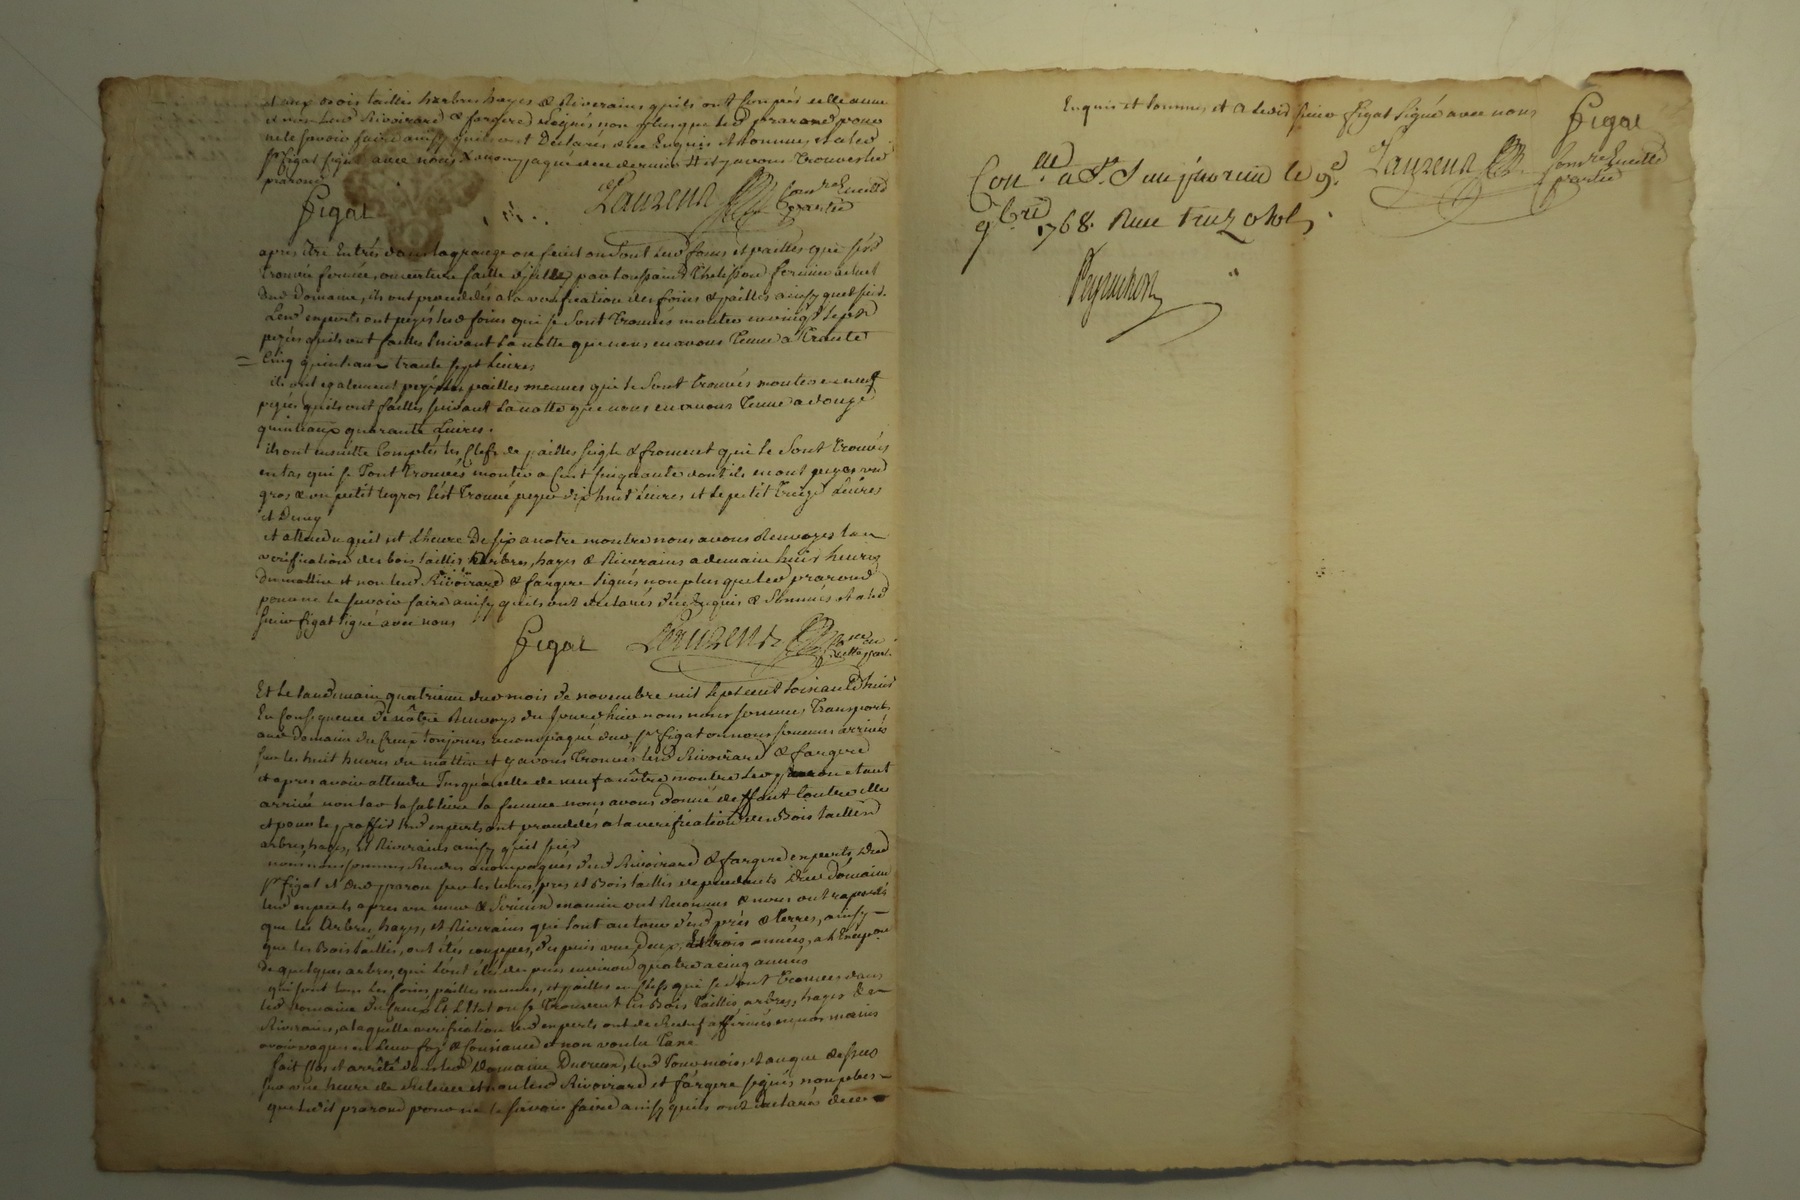 et aux bois taillis harbres hayes & Riverains quils ont Coupés celle année
et non Led Rivoirard & fargere signés non plus que led prarond pour
ne le savoir faire ainsy quils ont Declarés d'ece Enquis et sommes et a led
Sr figal signé avec nous
prarond
figal
Laurend
Comre Enqtte
partie
apres être Entrés dans la grange ou feniere ou sont Lesd foins et pailles que s'est
trouvée fermée, ouverture faitte d'jcelle par toussaint Chelisson fermier actuel
dud Domaine, ils ont procedés a la verification des foins & pailles ainsy quel suit
Lesd experts ont pezés lesd foins qui se sont trouvés monter a vingt sept
pezées quils ont faittes suivant La notte que nous en avons tenue a trante
Cinq quintaux trante sept Livres
ils ont egalement pezés les pailles menues qui se sont trouvés monter a neuf
pezées quils ont faittes suivant La notte que nous en avons tenue a douze
quintaux quarante Livres.
ils ont ensuitte Comptés les Clefs de pailles seigle & froment qui se sont trouvés
en tas qui se sont trouvées monter a Cent cinquante dont ils en ont pezés un
gros & un petit le gros s'est trouvé pezer dix huit Livres et le petit treize Livres
et Demy
et attendu quil est L'heure De six a notre montre nous avons Renvoyés la
verification des bois taillis harbres, hayes & Riverains a demain huit heures
Du mattin et non lesd Rivoirard & fargere signés non plus que led prarond
pour ne le savoir faire ainsy quils ont declarés d'ece Enquis & sommés et a led
sieur figal signé avec nous
figal Laurend
Et Le landemain quatrieme dud mois de novembre mil sept cent soixante huit
En Consequence de nôtre Renvoys du jour d'hier nous nous sommes transportés
aud Domaine du Creux toujours accompagné dud Sr figal ou nous sommes arrivés
sur les huit heures du mattin et y avons trouvés lesd Rivoirard & fargere
et apres avoir attendu jusqu'a celle de neuf a nôtre montre Led prarond etant
arrivé non lad la sabliere sa femme nous avons donné deffaut Contre elle
et pour le proffit lesd experts ont procedés a la verification desd Bois taillis
arbres, hayes, et Riverains ainsy quil suit
nous nous sommes Rendus acompagnés desd Rivoirard & fargere experts, dud
Sr figal et dud prarond sur les terres, prés et Bois taillis dependants dud domaine
lesd experts apres un meur & serieux examin ont Reconnus & nous ont raportés
que les Arbres, hayes, et Riverains qui sont autour desd prés & terres, ainsy
que les Bois taillis, ont étés couppés, depuis une, deux, et trois années, a L'exception
de quelques arbres, qui L'ont étés depuis environ quatre a cinq années
qui sont tous Les foins pailles menues, et pailles en Clefs qui se sont trouvées dans
led Domaine du Creux Et L'Etat ou se trouvent les Bois taillis arbres, hayes &
Riverains, a laquelle verification lesd experts ont de Rechef affirmés en nos mains
avoir vaqué en Leur foy & Consiance et non voulu taxe
fait Clos et arrêté dans led Domaine Du Creux, lesd Jour mois, et an que dessus
sur une heure de relevée et non lesd Rivoirard et fargere signés non plus
que ledit prarond pour ne le savoir faire ainsy quils ont declarés d'ece
Enquis et sommes, et a ledit sieur figal signé avec nous
figal
Laurend
Comre Enqtte
partie
Con.lle a St. Jean le 9e.
9bre 1768. Reçu
Peyrachon